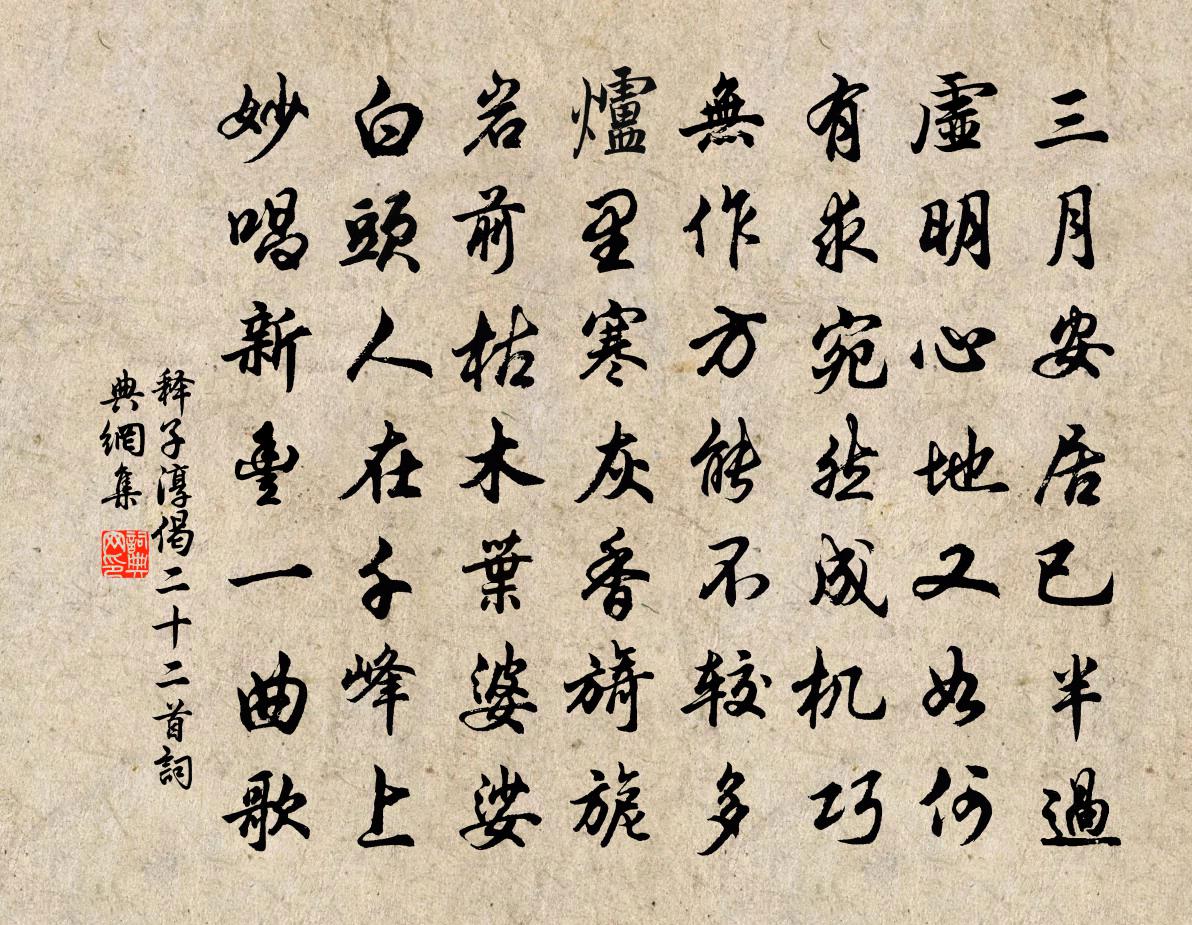 三月安居已半過
虛明心地又如何
有求宛然成机巧
無作方能不较多
爐里寒灰香旖旎
岩前枯木葉婆娑
白頭人在千峰上
妙唱新豐一曲歌
释子淳偈二十二首詞
典網集
詞典
网印